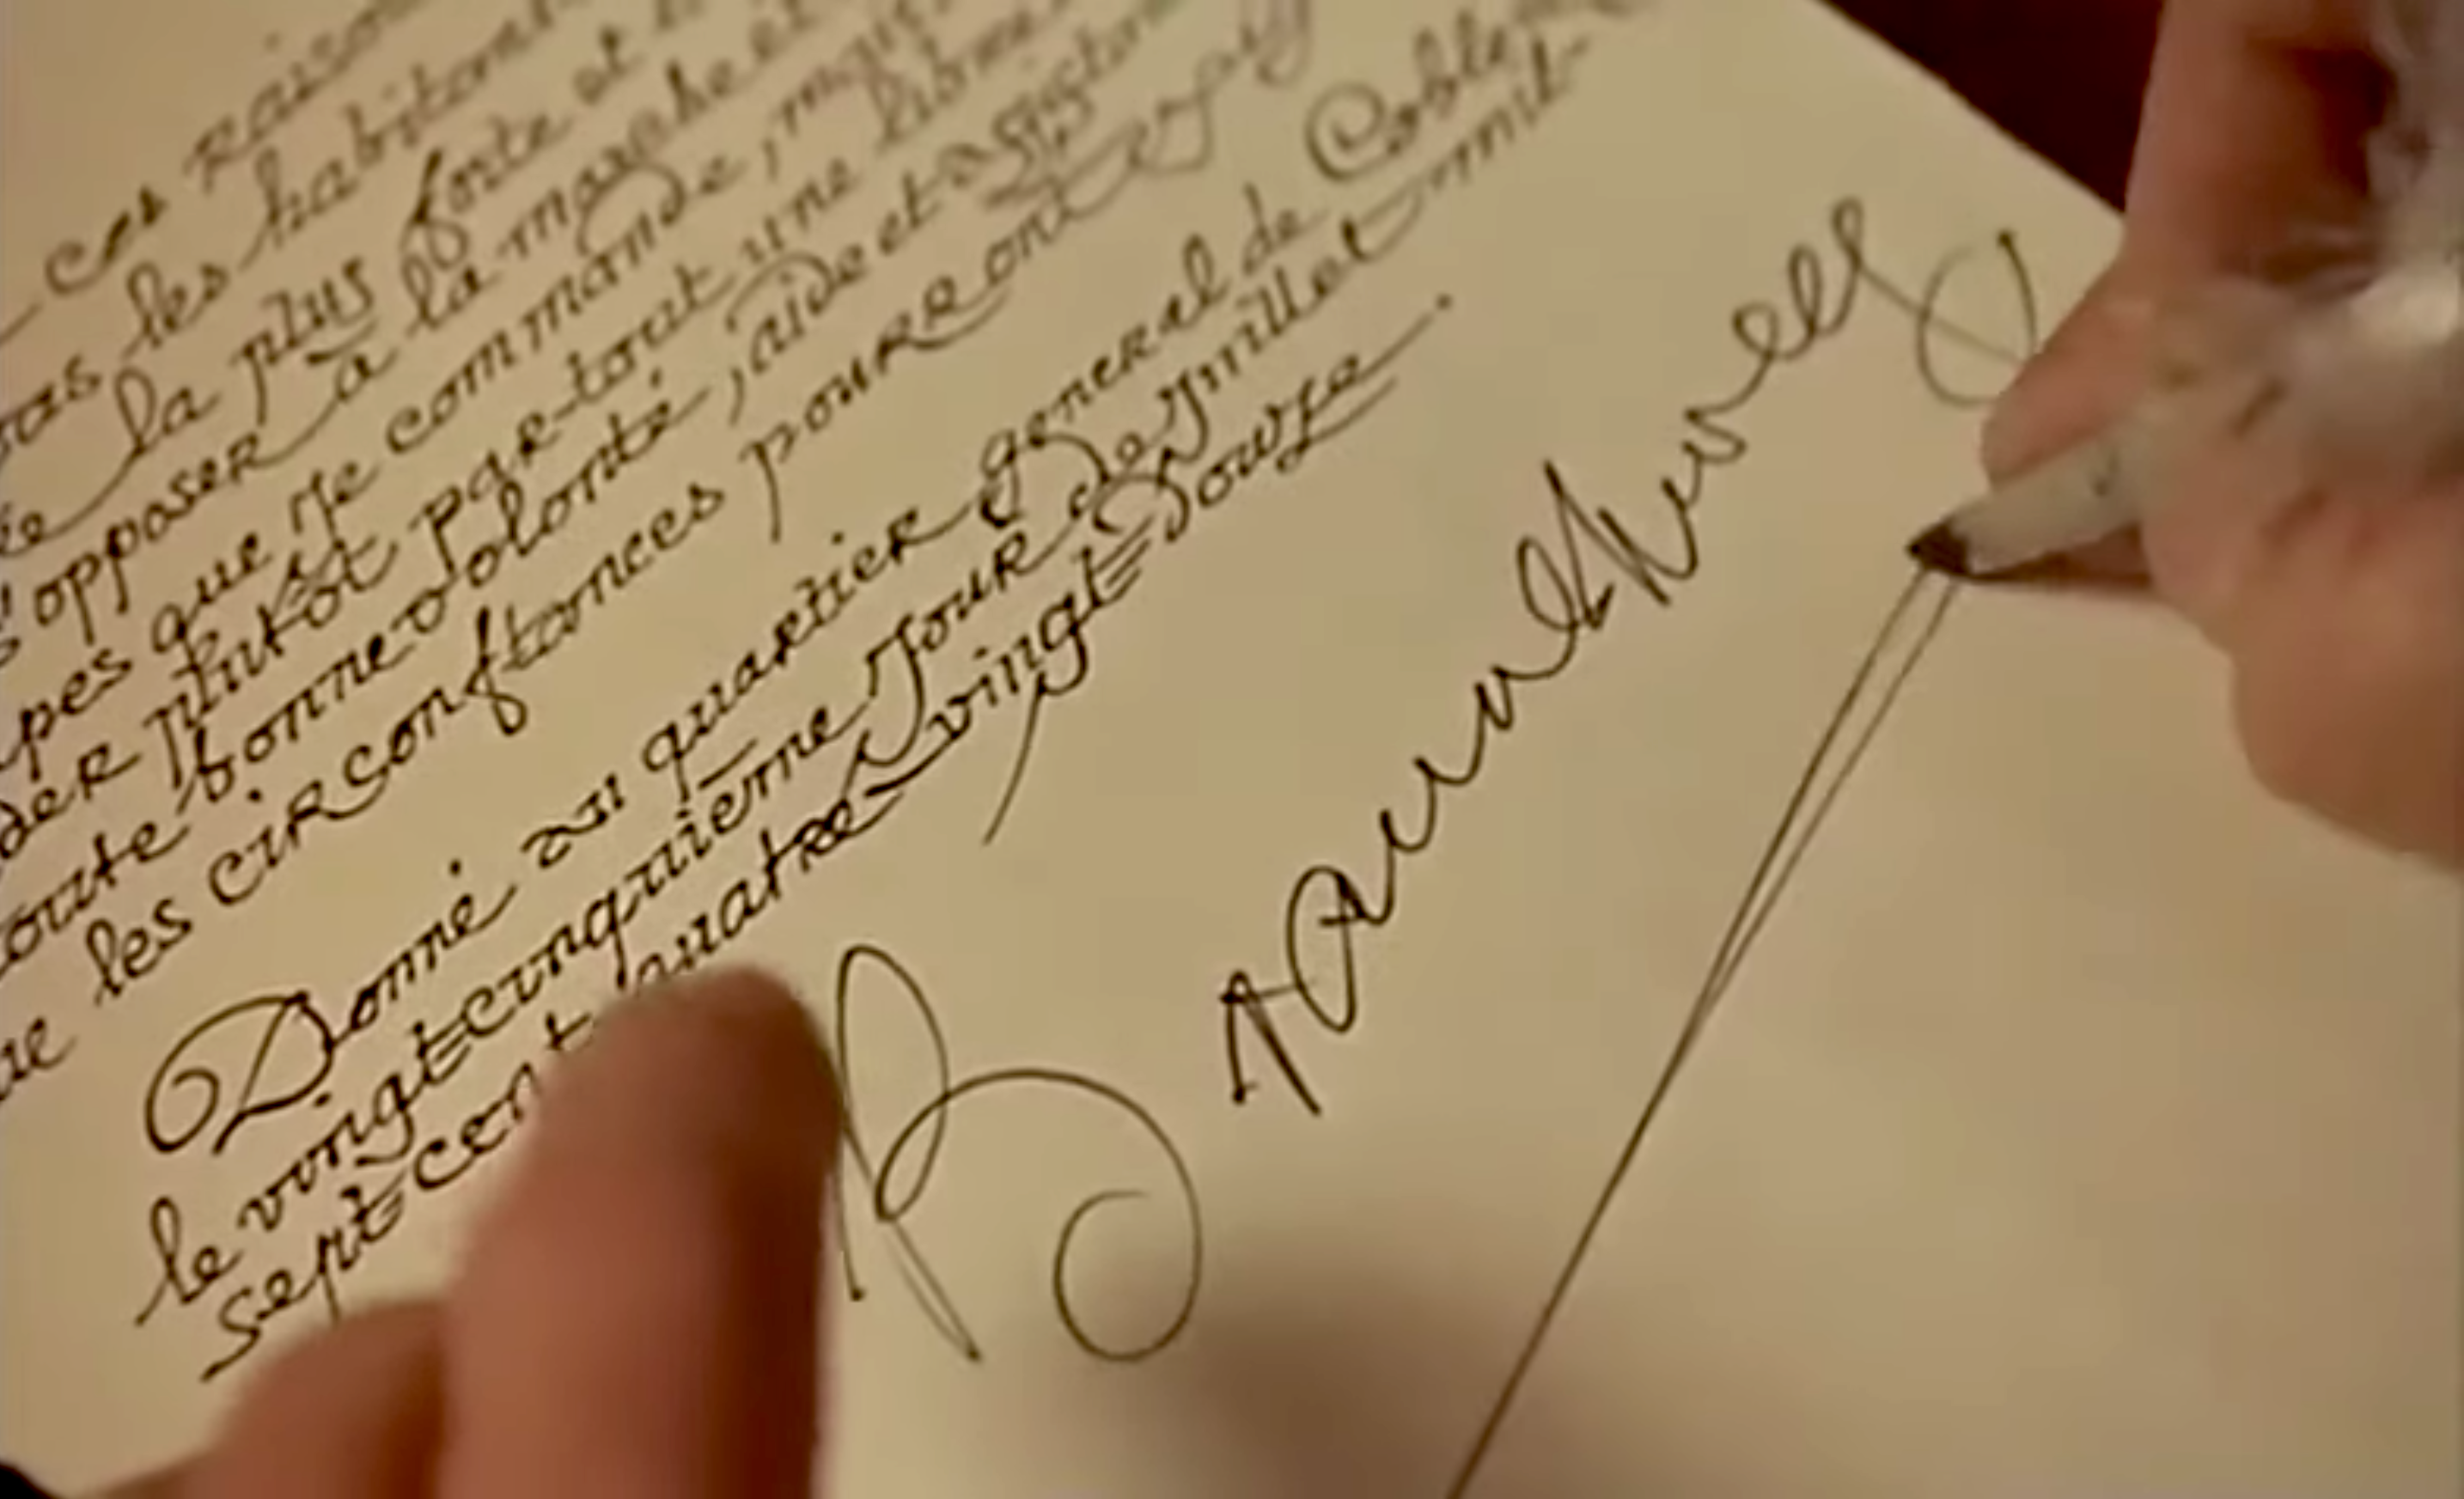 ces raiso
les habitan
la plus forte et
s'opposer à la marche et
pes que je commande, mais
der plutôt par-tout une
toute bonne volonté, aide et assistan
ue les circonstances pourront
Donné au quartier general de Coble
le vingt-cinquième jour de juillet mil
sept-cent quatre-vingt-douze.